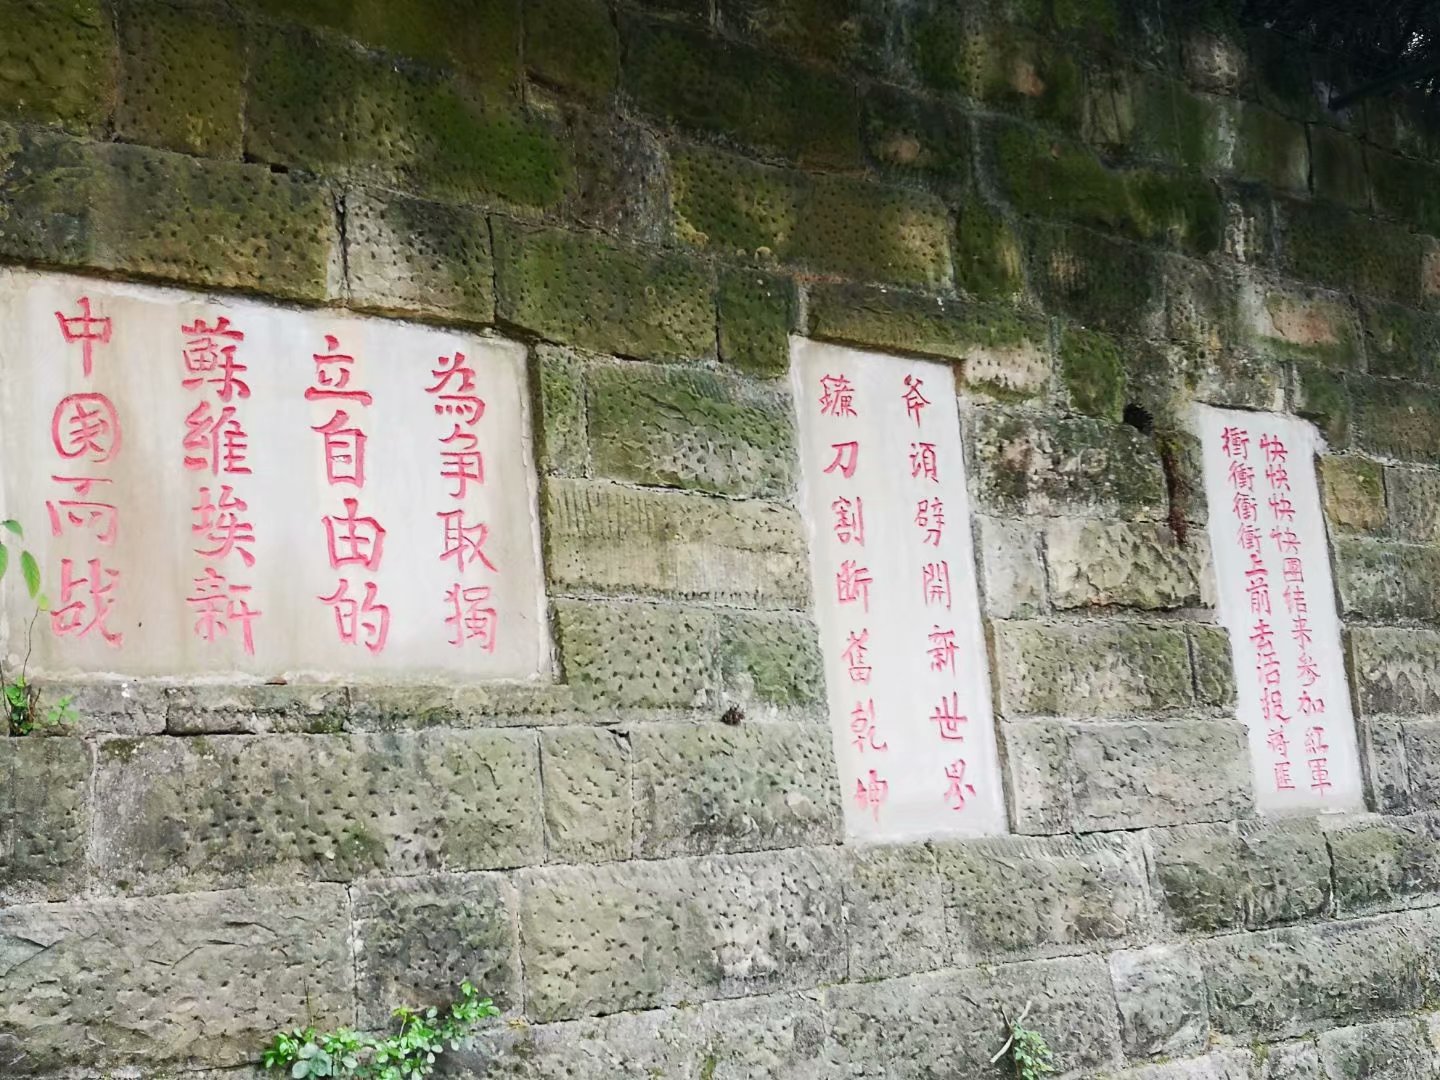 快快快快團结来參加紅軍
衝衝衝衝上前去活捉蒋匪
斧頭劈開新世界
鐮刀割断舊乾坤
為争取獨
立自由的
蘇維埃新
中国而战